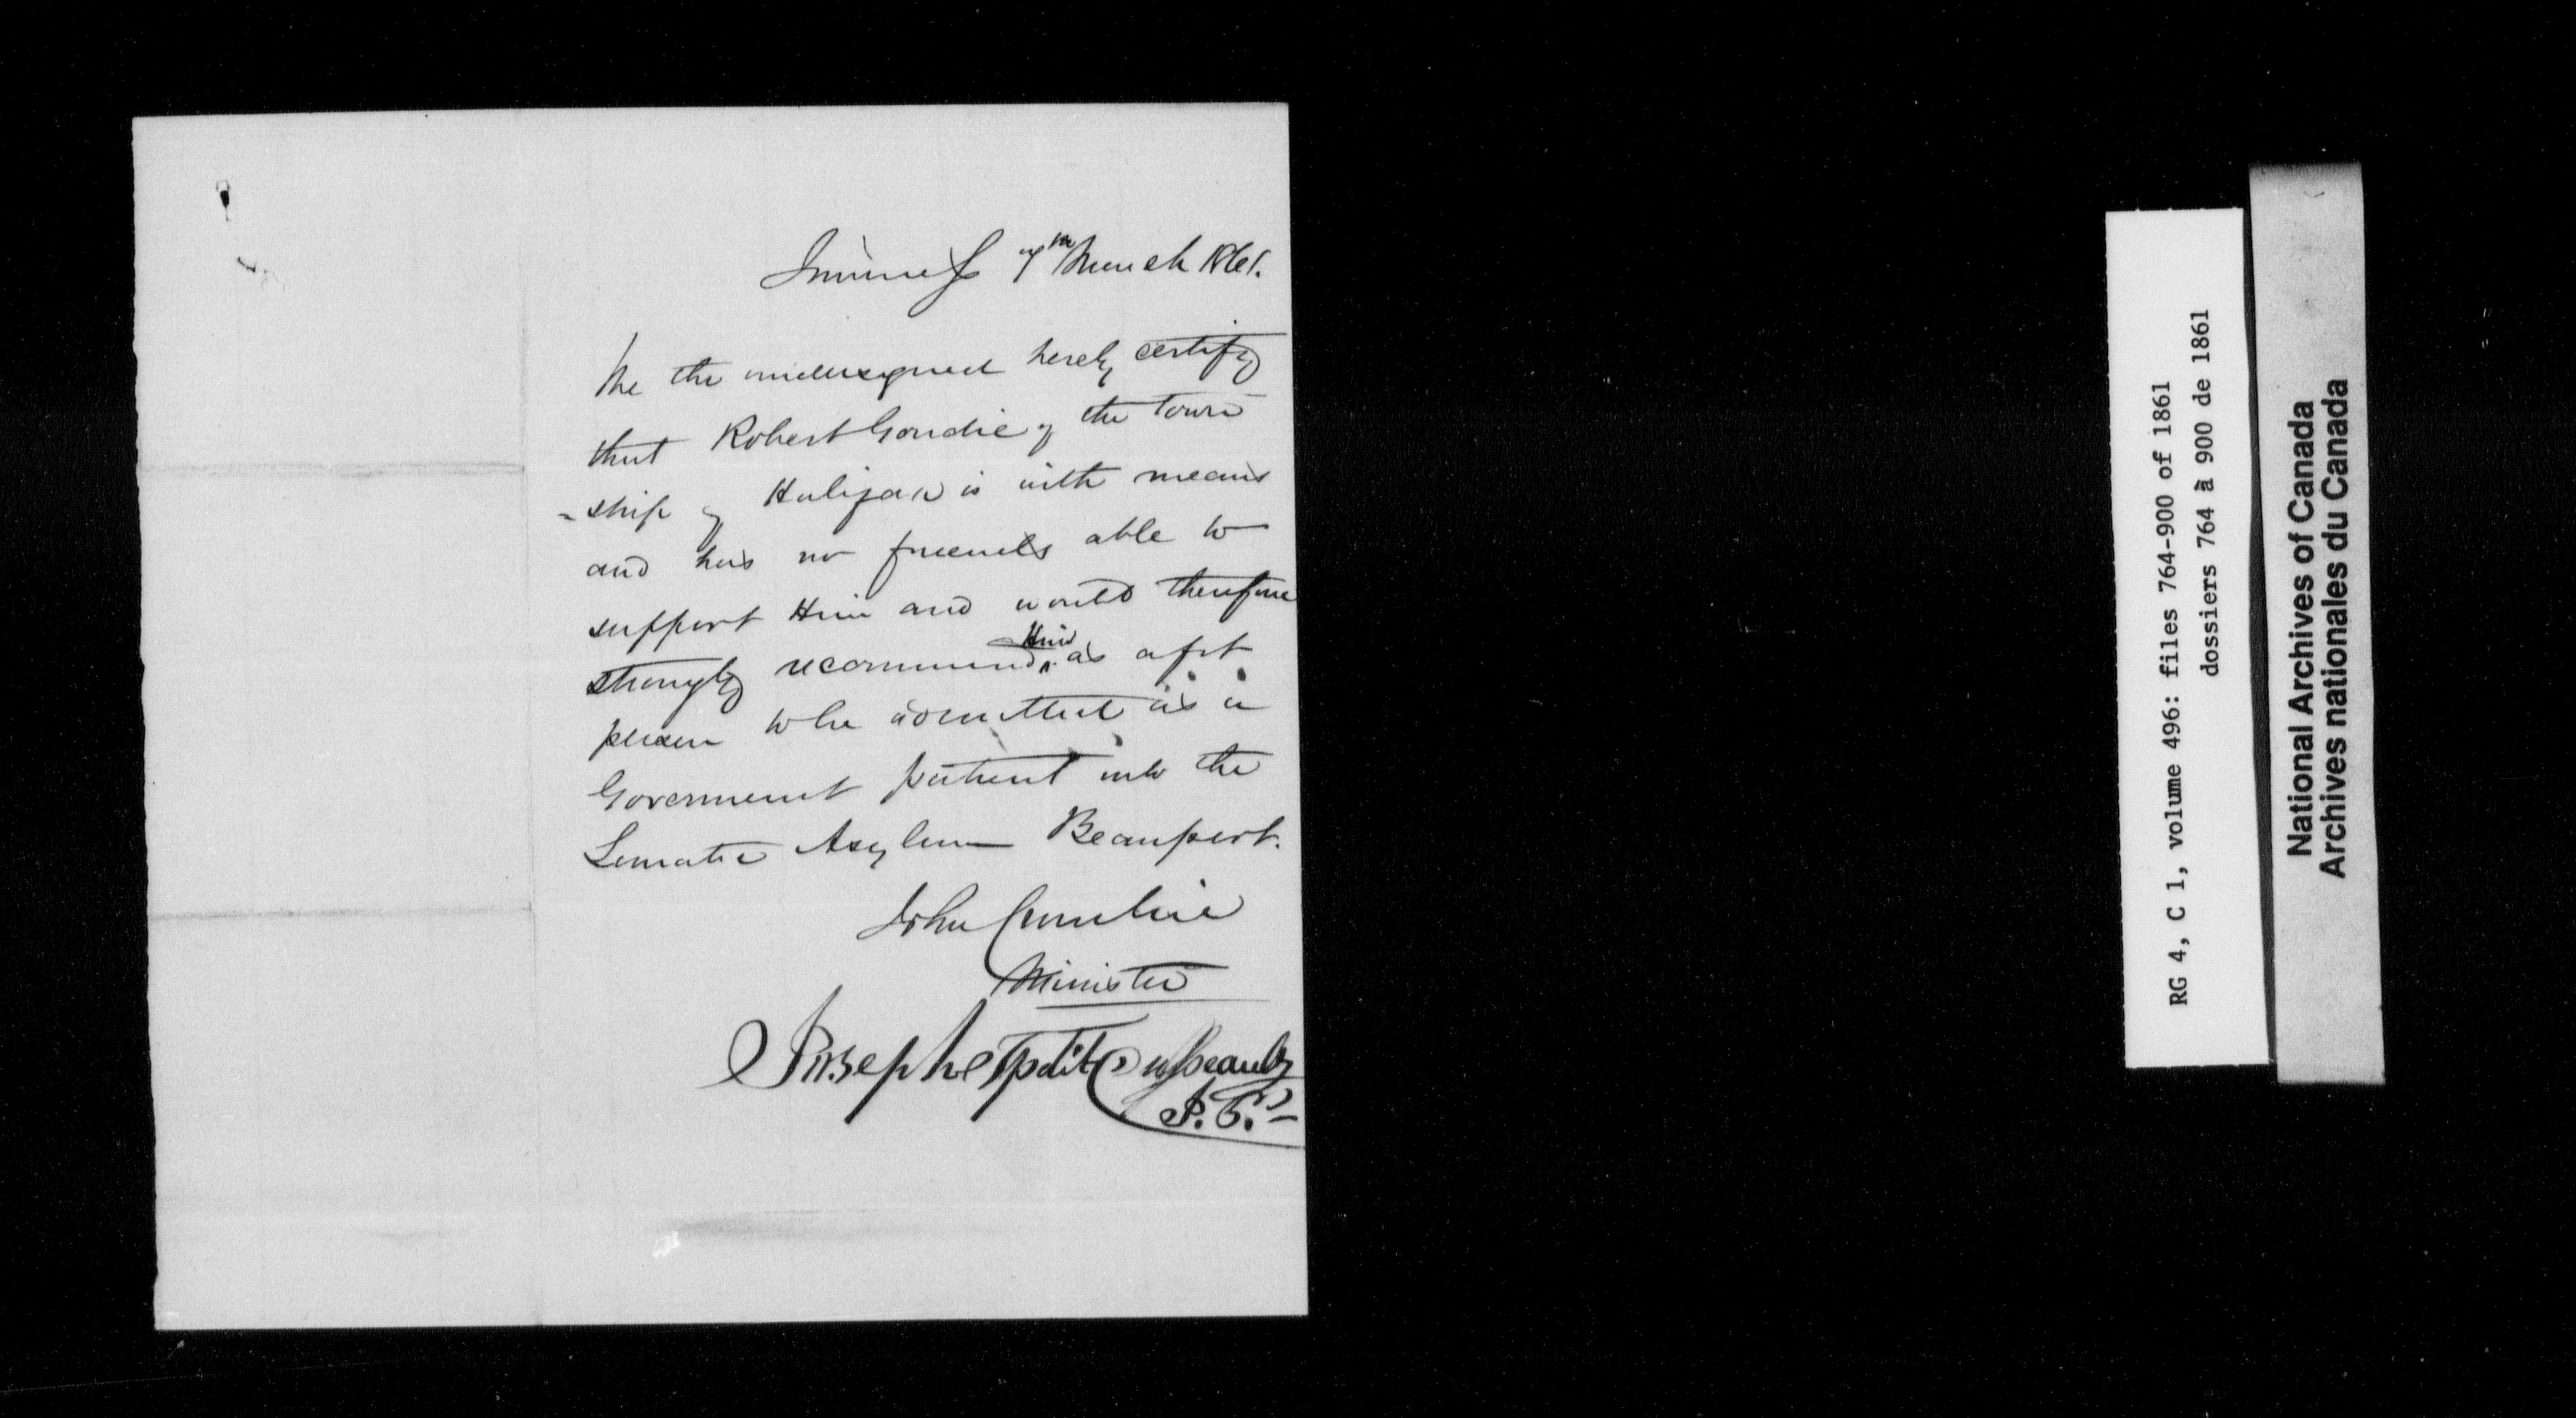 Inverness 7th March 1861.
We the undersigned hereby certify
that Robert Goudie of the Town
-ship of Halifax is with means
and has no freends able to
support Him and would therefore
strongly recommend Him as a fit
person to be admitted as a
Government patient into the
Lunatic Asylum Beauport.
John
Minister
Joseph
RG 4, C 1, volume 496: files 764-900 of 1861
dossiers 764 à 900 de 1861
National Archives of Canada
Archives nationales du Canada